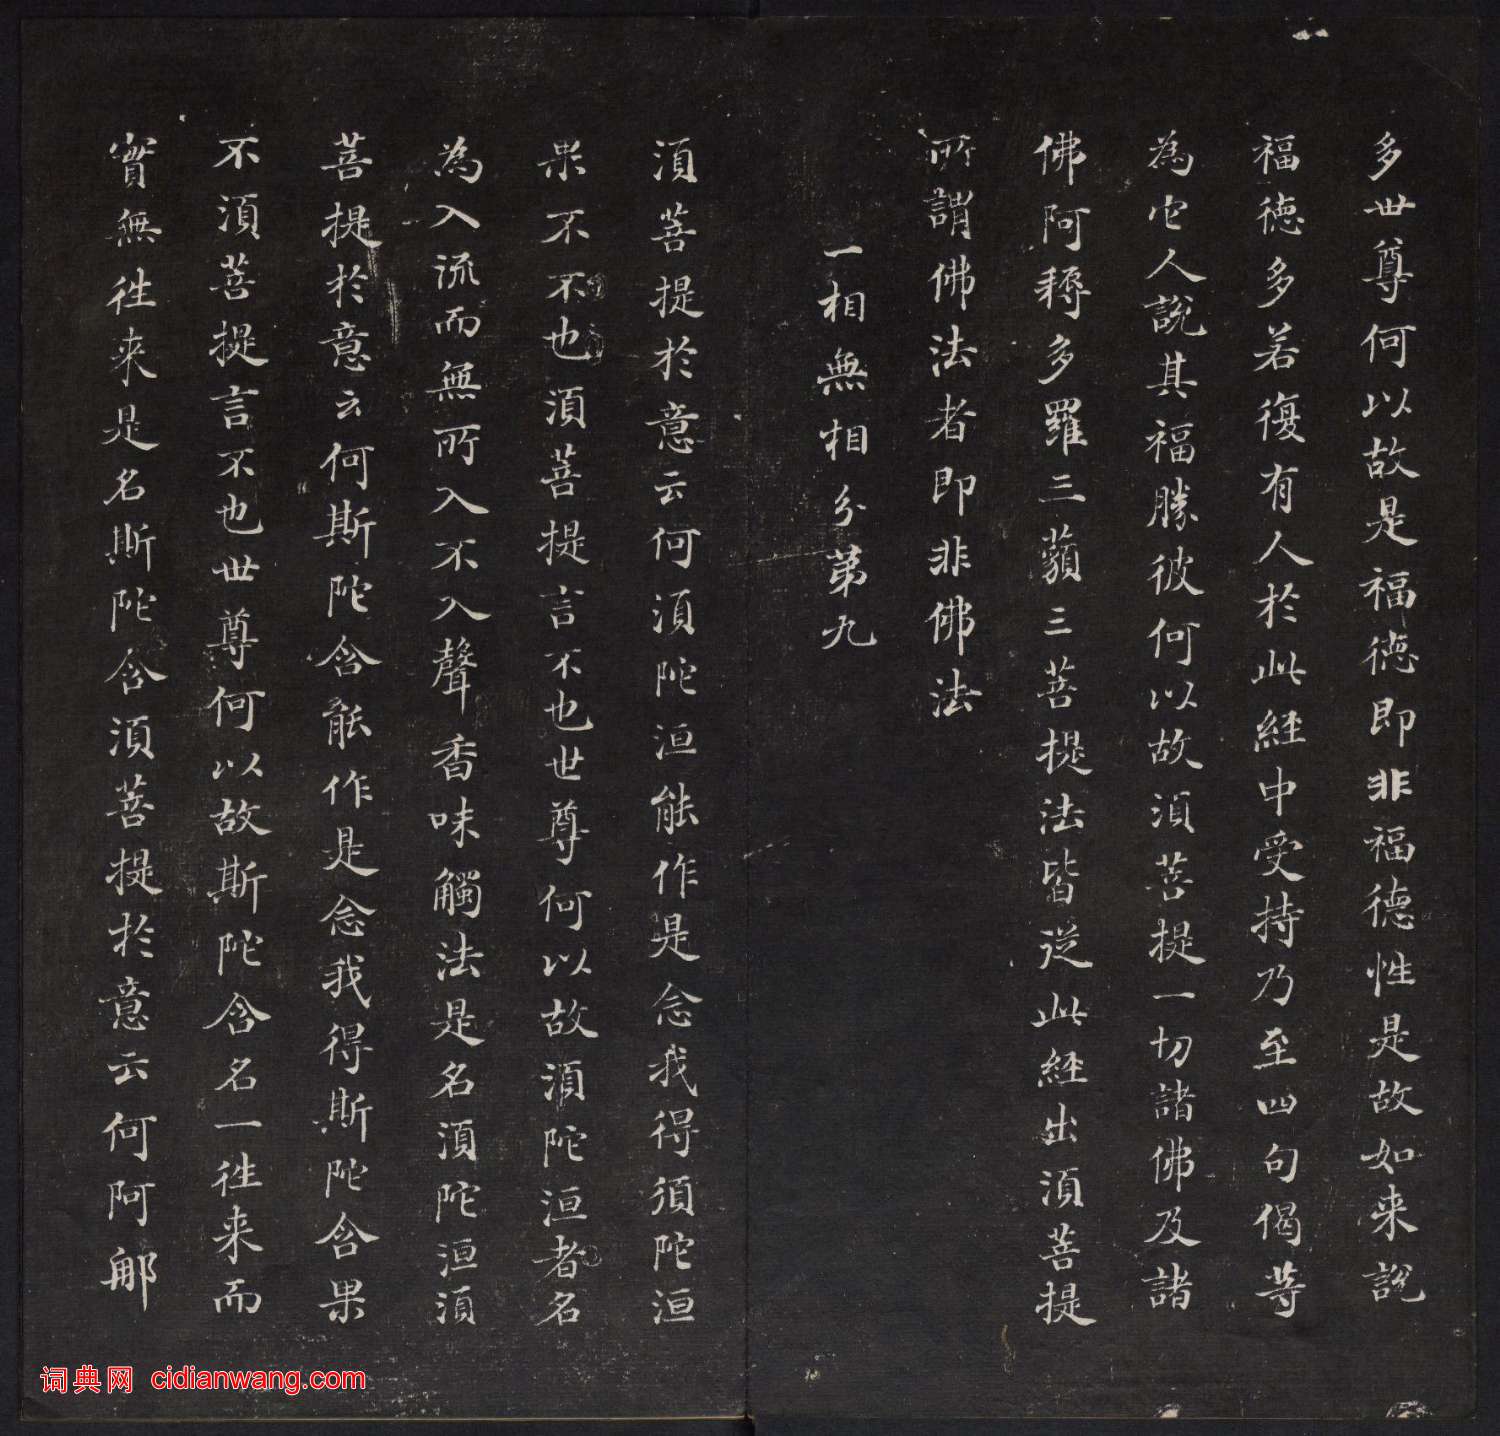 多世尊何以故是福德即非福德性是故如来說
福德多若復有人於此經中受持乃至四句偈等
為它人說其福勝彼何以故須菩提一切諸佛及諸
佛阿耨多羅三藐三菩提法皆從此經出須菩提
所謂佛法者即非佛法
一相無相分第九
須菩提於意云何須陀洹能作是念我得須陀洹
果不不也須菩提言不也世尊何以故須陀洹者名
為入流而無所入不入聲香味觸法是名須陀洹須
菩提於意云何斯陀含能作是念我得斯陀含果
不須菩提言不也世尊何以故斯陀含名一往来而
實無往来是名斯陀含須菩提於意云何阿那
词典网 cidianwang.com